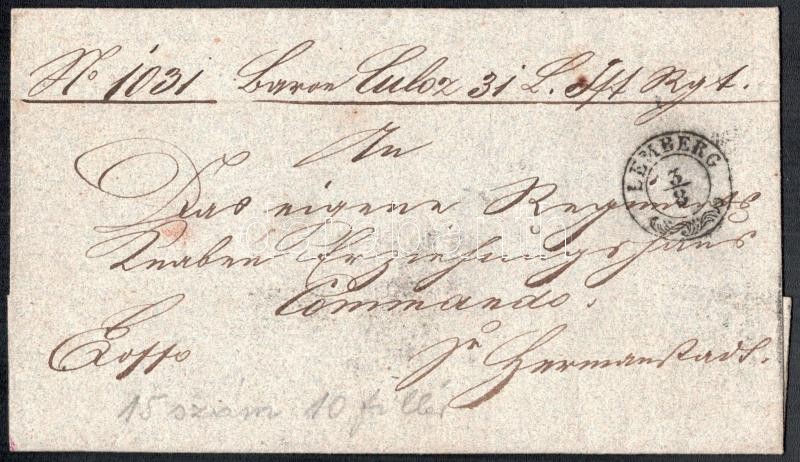 No 1031 Baron Culoz 31 L. Inft Rgt.
An
Das eigene Regiments
Knaben Erziehungshaus
Commando.
Zu Hermanstadt.
LEMBERG
3/8
15 szám 10 fillér